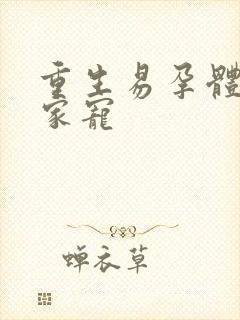 重生易孕體
家寵
蝉衣草